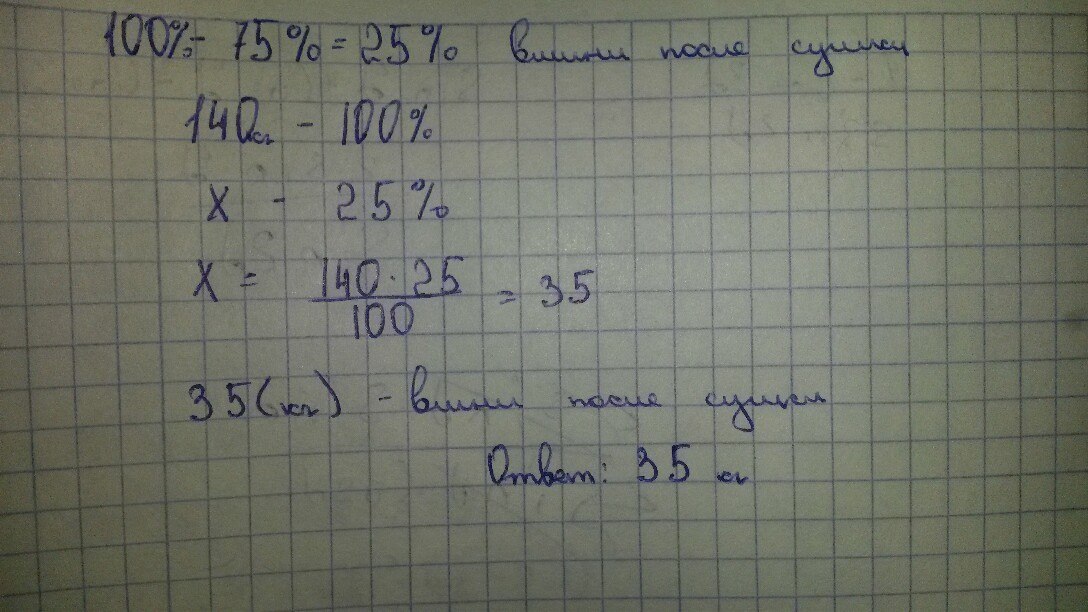 100% - 75% = 25% вишни после сушки
140кг - 100%
х - 25%
х = 140·25/100 = 35
35(кг) - вишни после сушки
Ответ: 35 кг